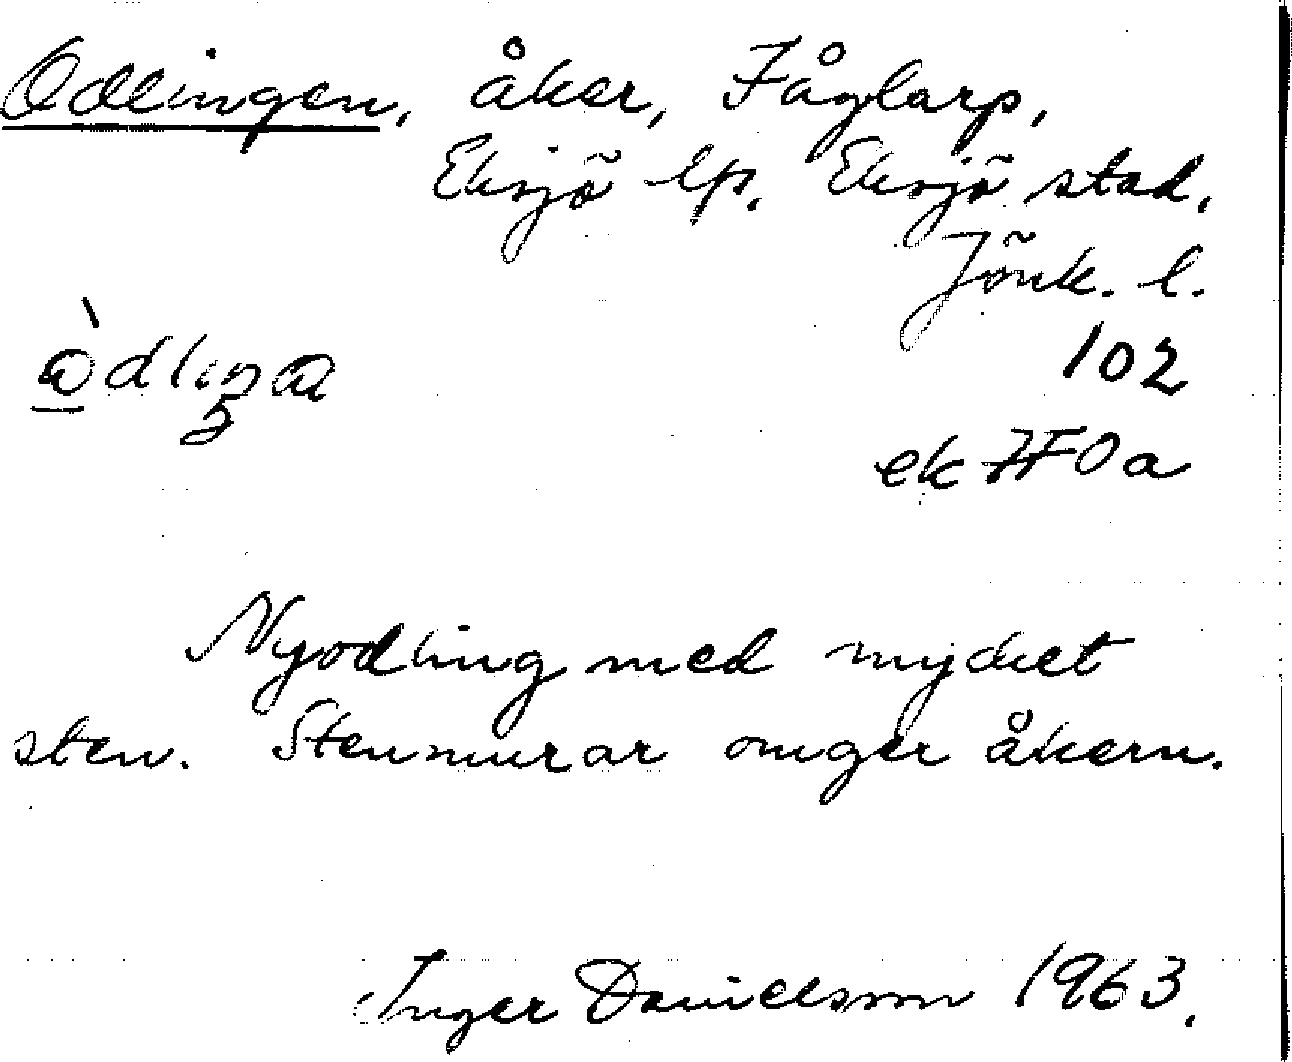 Odlingen, åker, Fåglarp,
Eksjö lfs. Eksjö stad,
Jönk. l.
102
ek 7F0a
Nyodling med mycket
sten. Stenmurar omger åkern.
Inger Danielsson 1963.